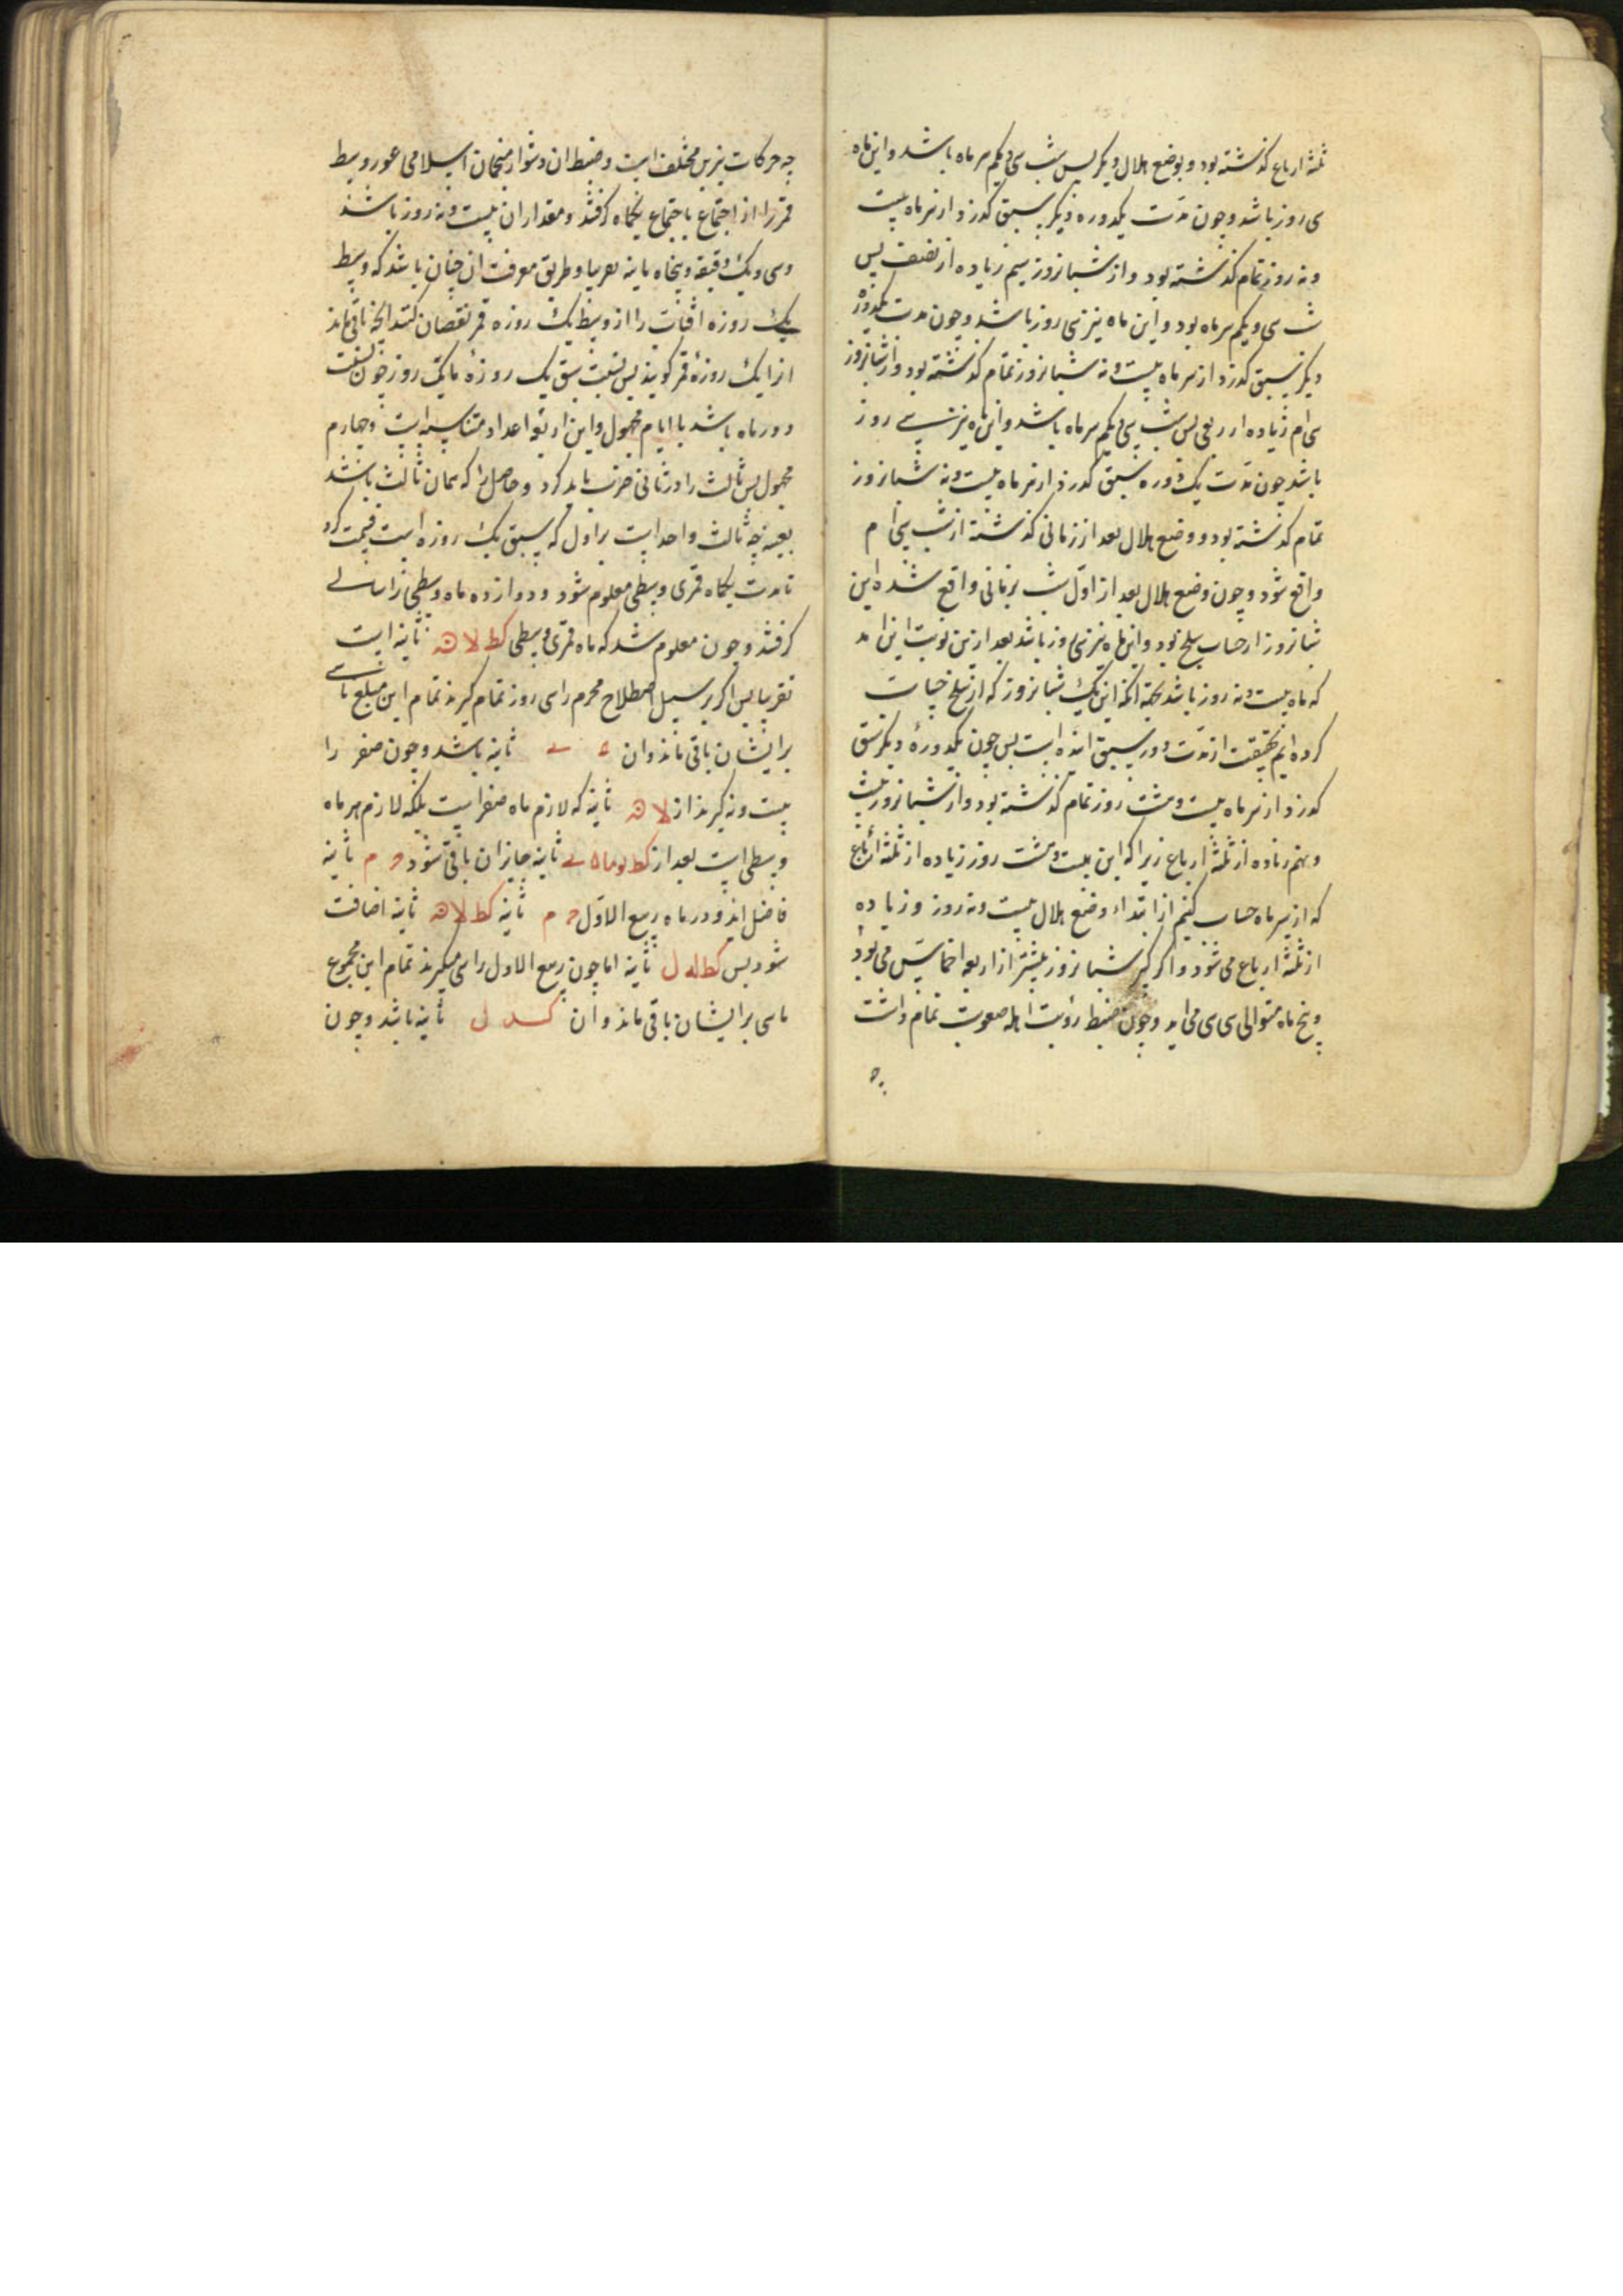 ثلثه ارباع کذشته بود و بوضع هلال دیکر پس شب سی و یکم سر ماه باشد و این ماه
سی روز باشد و چون مدت یکدوره دیکر سبق کذرد از سر ماه بیست
و نه روز تمام کذشته بود و از شبانروز سیم زیاده از نصف پس
شب سی و یکم سر ماه بود و این ماه نیز سی روز باشد و چون مدت یکدوره
دیکر سبق کذرد از سر ماه بیست و نه شبانروز تمام کذشته بود و از شبانروز
سی ام زیاده از ربعی پس شب سی و یکم سر ماه باشد و این ماه نیز سی روز
باشد چون مدت یک دوره سبق کذرد از سر ماه بیست و نه شبانروز
تمام کذشته بود و وضع هلال بعد از زمانی کذشته از شب سی ام
واقع شود و چون وضع هلال بعد از اول شب بزمانی واقع شده این
شبانروز از حساب سلخ بود و این ماه نیز سی روز باشد بعد ازین نوبت این آمد
که ماه بیست و نه روز باشد بجهة آنکه این یک شبانروز که از سلخ حساب
کرده ایم بحقیقت از مدت دور سبق آینده است پس چون یکدوره دیکر سبق
کذرد از سر ماه بیست و هشت روز تمام کذشته بود و از شبانروز بیست
و نهم زیاده از ثلثه ارباع زیرا که این بیست و هشت روز زیاده از ثلثه ارباع
که از سر ماه حساب کنیم از ابتداء وضع هلال بیست و نه روز و زیاده
از ثلثه ارباع می شود و اکر کسر شبانروز بیشتر از اربعه اخماس می بود
پنج ماه متوالی سی سی می آمد و چون ضبط رؤیت اهله صعوبت تمام داشت
چه
چه حرکات نیرین مختلف است و ضبط آن دشوار منجمان اسلامی عور وسط
قمر را از اجتماع باجتماع یکماه کرفتند و مقدار آن بیست و نه روز باشد
و سی و یک دقیقه و پنجاه ثانیه تقریبا و طریق معرفت آن چنان باشد که وسط
یک روزه آفتاب را از وسط یک روزه قمر نقصان کنند آنچه باقی ماند
آنرا یک روزهٔ قمر کویند پس نسبت سبق یک روزهٔ با یک روز چون نسبت
دور ماه باشد با ایام مجهول و این اربعه اعداد متناسبه است و چهارم
مجهول پس ثالث را در ثانی ضرب باید کرد و حاصل را که همان ثالث باشد
بعینه چه ثالث واحد است بر اول که سبق یک روزه است قسمت کرد
تا مدت یکماه قمری وسطی معلوم شود و دوازده ماه وسطی را سالی
کرفتند و چون معلوم شد که ماه قمری وسطی کط لا ن ثانیه است
تقریبا پس اکر بر سبیل اصطلاح محرم را سی روز تمام کیرند تمام این مبلغ تا سی
برایشان باقی ماند و آن ثانیه باشد و چون صفر را
بیست و نه کیرند از لا ن ثانیه که لازم ماه صفر است بلکه لازم هر ماه
وسطی است بعد از ثانیه جایز آن باقی شود م ثانیه
فاضل آید و در ماه ربیع الاول م ثانیه کط لا ن ثانیه اضافت
شود پس کط له ل ثانیه اما چون ربیع الاول را سی میکیرند تمام این مجموع
تا سی برایشان باقی ماند و آن کد ل ثانیه باشد و چون